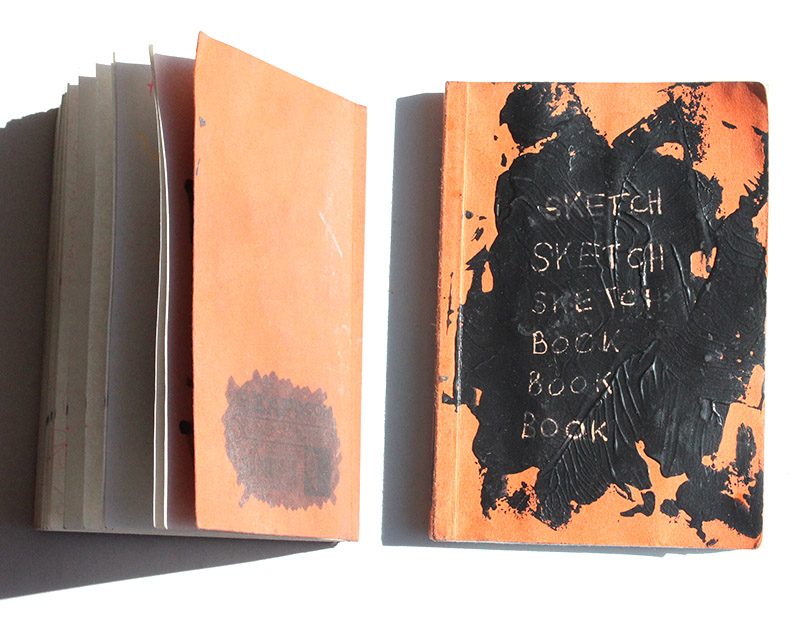 SKETCH
SKETCH
SKETCH
BOOK
BOOK
BOOK